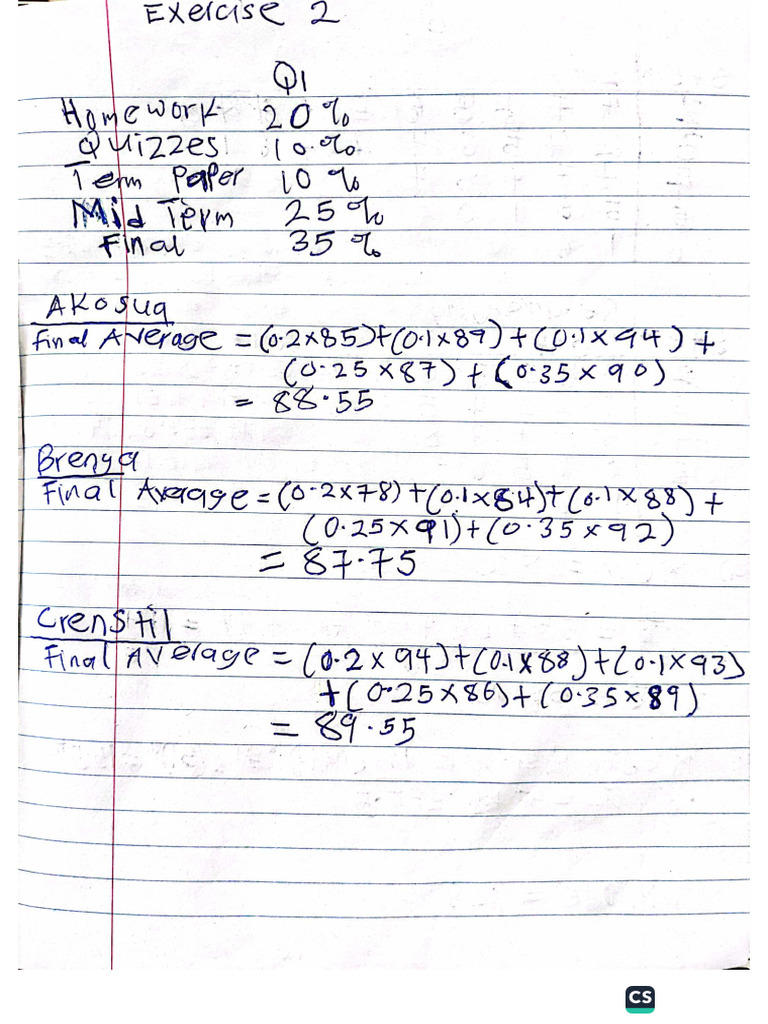 Exercise 2
Q1
Homework 20%
Quizzes 10%
Term Paper 10%
Mid Term 25%
Final 35%
Akosua
Final Average = (0.2 x 85) + (0.1 x 89) + (0.1 x 94) +
(0.25 x 87) + (0.35 x 90)
= 88.55
Brenya
Final Average = (0.2 x 78) + (0.1 x 84) + (0.1 x 88) +
(0.25 x 91) + (0.35 x 92)
= 87.75
Crenstil
Final Average = (0.2 x 94) + (0.1 x 88) + (0.1 x 93)
+ (0.25 x 86) + (0.35 x 89)
= 89.55
CS